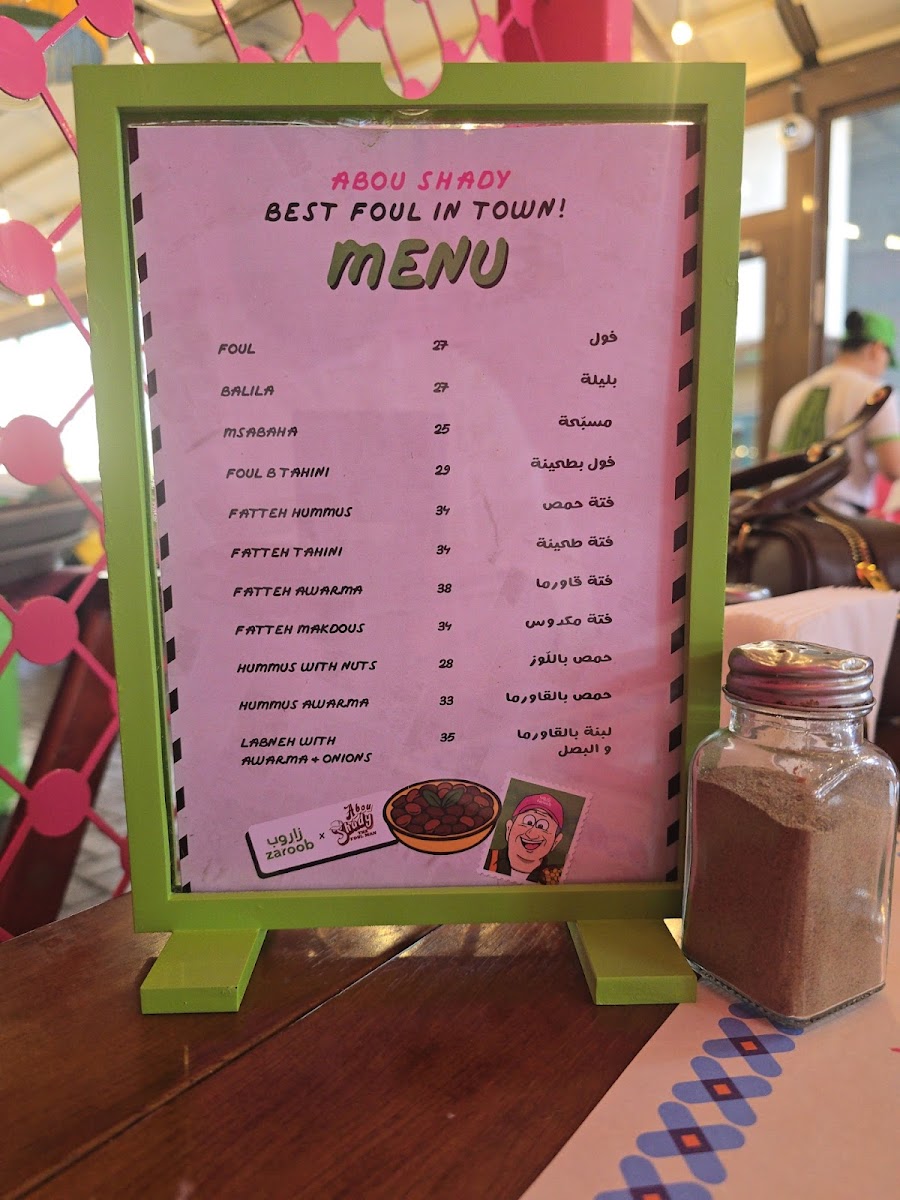 ABOU SHADY
BEST FOUL IN TOWN!
MENU
FOUL 27 فول
BALILA 27 بليلة
MSABAHA 25 مسبّحة
FOUL B TAHINI 29 فول بطحينة
FATTEH HUMMUS 34 فتة حمص
FATTEH TAHINI 34 فتة طحينة
FATTEH AWARMA 38 فتة قاورما
FATTEH MAKDOUS 34 فتة مكدوس
HUMMUS WITH NUTS 28 حمص باللّوز
HUMMUS AWARMA 33 حمص بالقاورما
LABNEH WITH 35 لبنة بالقاورما
AWARMA + ONIONS و البصل
زاروب
zaroob x Abou
Shady
THE
FOUL MAN